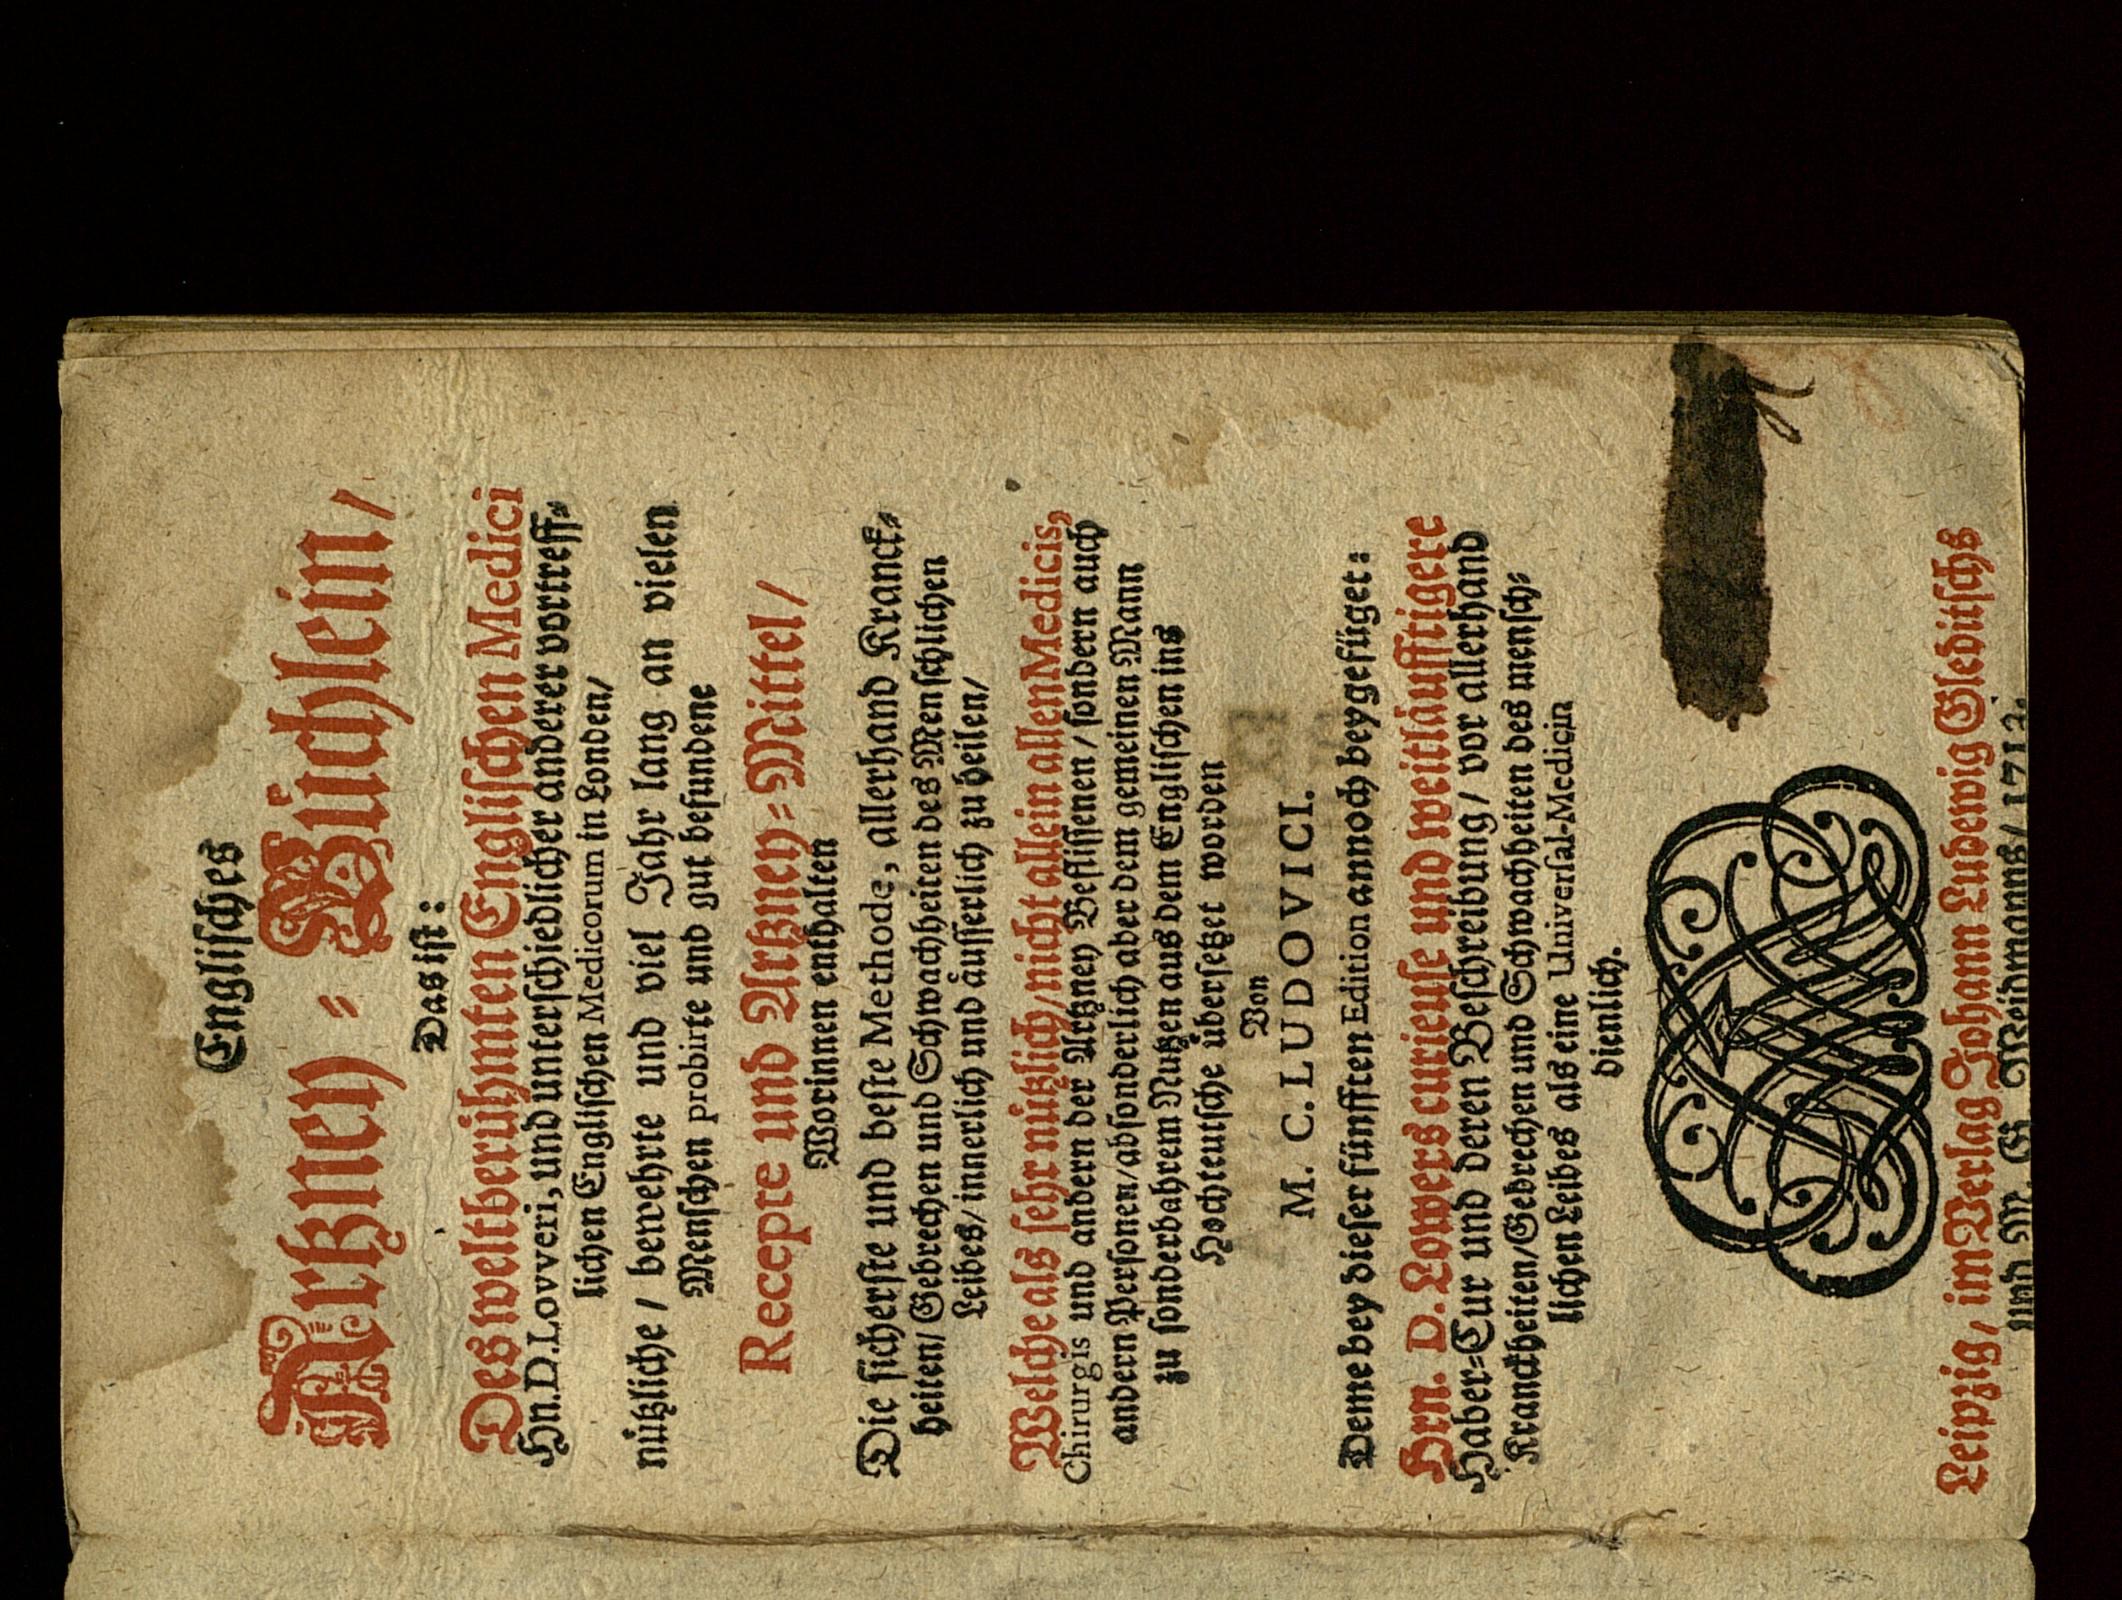 Englisches
Artzney = Büchlein /
Das ist:
Des weltberühmten Englischen Medici
Hn. D. Lovveri, und unterschiedlicher anderer vortreff=
lichen Englischen Medicorum in Londen /
nützliche / bewehrte und viel Jahr lang an vielen
Menschen probirte und gut befundene
Recepte und Artzney=Mittel /
Worinnen enthalten
Die sicherste und beste Methode, allerhand Kranck=
heiten / Gebrechen und Schwachheiten des Menschlichen
Leibes / innerlich und äusserlich zu heilen /
Welche als sehr nützlich / nicht allein allen Medicis,
Chirurgis und andern der Artzney Beflissenen / sondern auch
andern Personen / absonderlich aber dem gemeinen Mann
zu sonderbahrem Nutzen aus dem Englischen ins
Hochteutsche übersetzet worden
Von
M. C. LUDOVICI.
Deme bey dieser fünfften Edition annoch beygefüget:
Hrn. D. Lowers curieuse und weitläufftigere
Haber=Cur und deren Beschreibung / vor allerhand
Kranckheiten / Gebrechen und Schwachheiten des mensch=
lichen Leibes als eine Universal-Medicin
dienlich.
Leipzig / im Verlag Johann Ludewig Gleditschs
und M. G. Weidmanns / 1712.